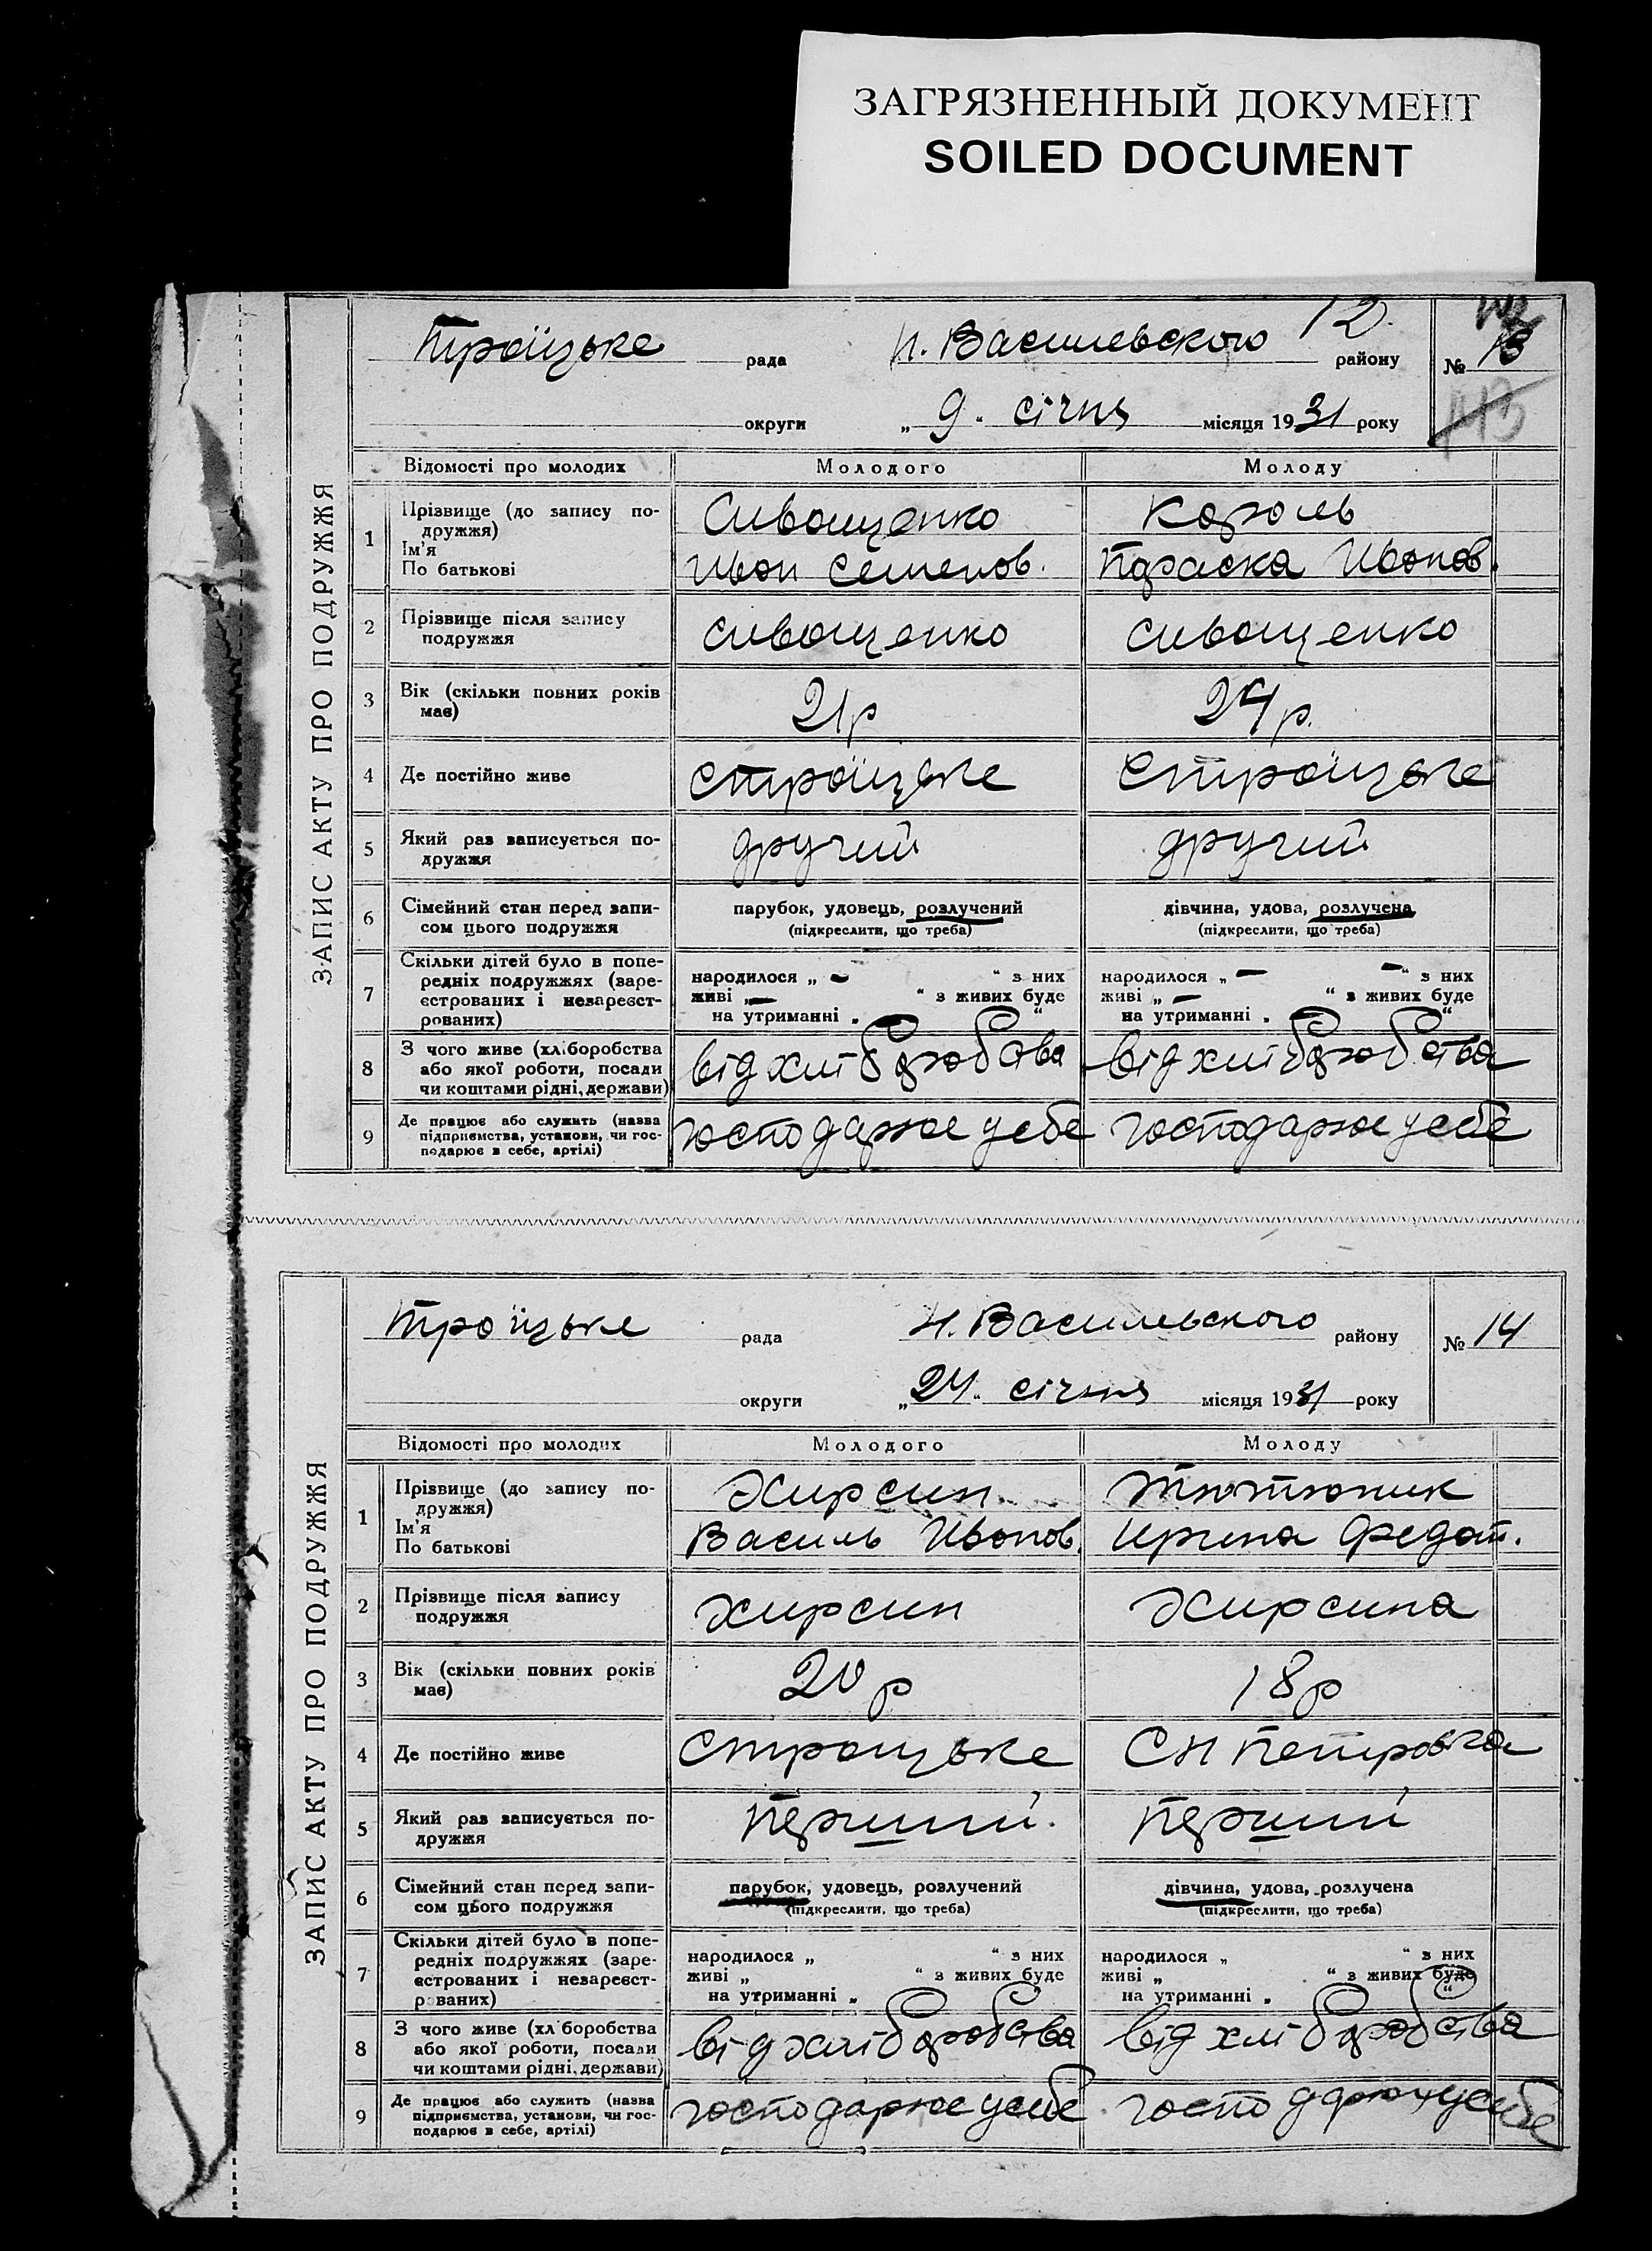 ЗАГРЯЗНЕННЫЙ ДОКУМЕНТ
SOILED DOCUMENT
ЗАПИС АКТУ ПРО ПОДРУЖЖЯ
12.
Троїцьке рада Н. Василевского району № 13
округи „9“ січня місяця 1931 року
Відомості про молодих Молодого Молоду
1 Прізвище (до запису по-
дружжя) Сиващенко Король
Ім’я
По батькові Иван Семенов. Параска Иванов.
2 Прізвище після запису
подружжя Сиващенко Сиващенко
3 Вік (скільки повних років
має) 21р 24р.
4 Де постійно живе Строїцьке Строїцьке
5 Який раз записується по-
дружжя другий другий
6 Сімейний стан перед запи-
сом цього подружжя
парубок, удовець, розлучений дівчина, удова, розлучена
(підкреслити, що треба) (підкреслити, що треба)
7 Скільки дітей було в попе-
редніх подружжях (заре-
єстрованих і незареєст-
рованих)
народилося „ — “ з них народилося „ — — “ з них
живі „ — “ з живих буде живі „ — “ з живих буде
на утриманні „ — “ на утриманні „ — “
8 З чого живе (хліборобства
або якої роботи, посади
чи коштами рідні, держави)
від хліборобства від хліборобства
9 Де працює або служить (назва
підприємства, установи, чи гос-
подарює в себе, артілі)
господарює у себе господарює у себе
ЗАПИС АКТУ ПРО ПОДРУЖЖЯ
Троїцьке рада Н. Василевского району № 14
округи „24“ січня місяця 1931 року
Відомості про молодих Молодого Молоду
1 Прізвище (до запису по-
дружжя) Хирсин Тютюник
Ім’я
По батькові Василь Иванов. Ирина Федот.
2 Прізвище після запису
подружжя Хирсин Хирсина
3 Вік (скільки повних років
має) 20р 18р
4 Де постійно живе Строицьке СН Петровка
5 Який раз записується по-
дружжя Перший. Перший
6 Сімейний стан перед запи-
сом цього подружжя
парубок, удовець, розлучений дівчина, удова, розлучена
(підкреслити, що треба) (підкреслити, що треба)
7 Скільки дітей було в попе-
редніх подружжях (заре-
єстрованих і незареєст-
рованих)
народилося „ “ з них народилося „ “ з них
живі „ “ з живих буде живі „ “ з живих буде
на утриманні „ на утриманні „ “
8 З чого живе (хліборобства
або якої роботи, посади
чи коштами рідні, держави)
від хліборобства від хліборобства
9 Де працює або служить (назва
підприємства, установи, чи гос-
подарює в себе, артілі)
господарює у себе господарює у себе